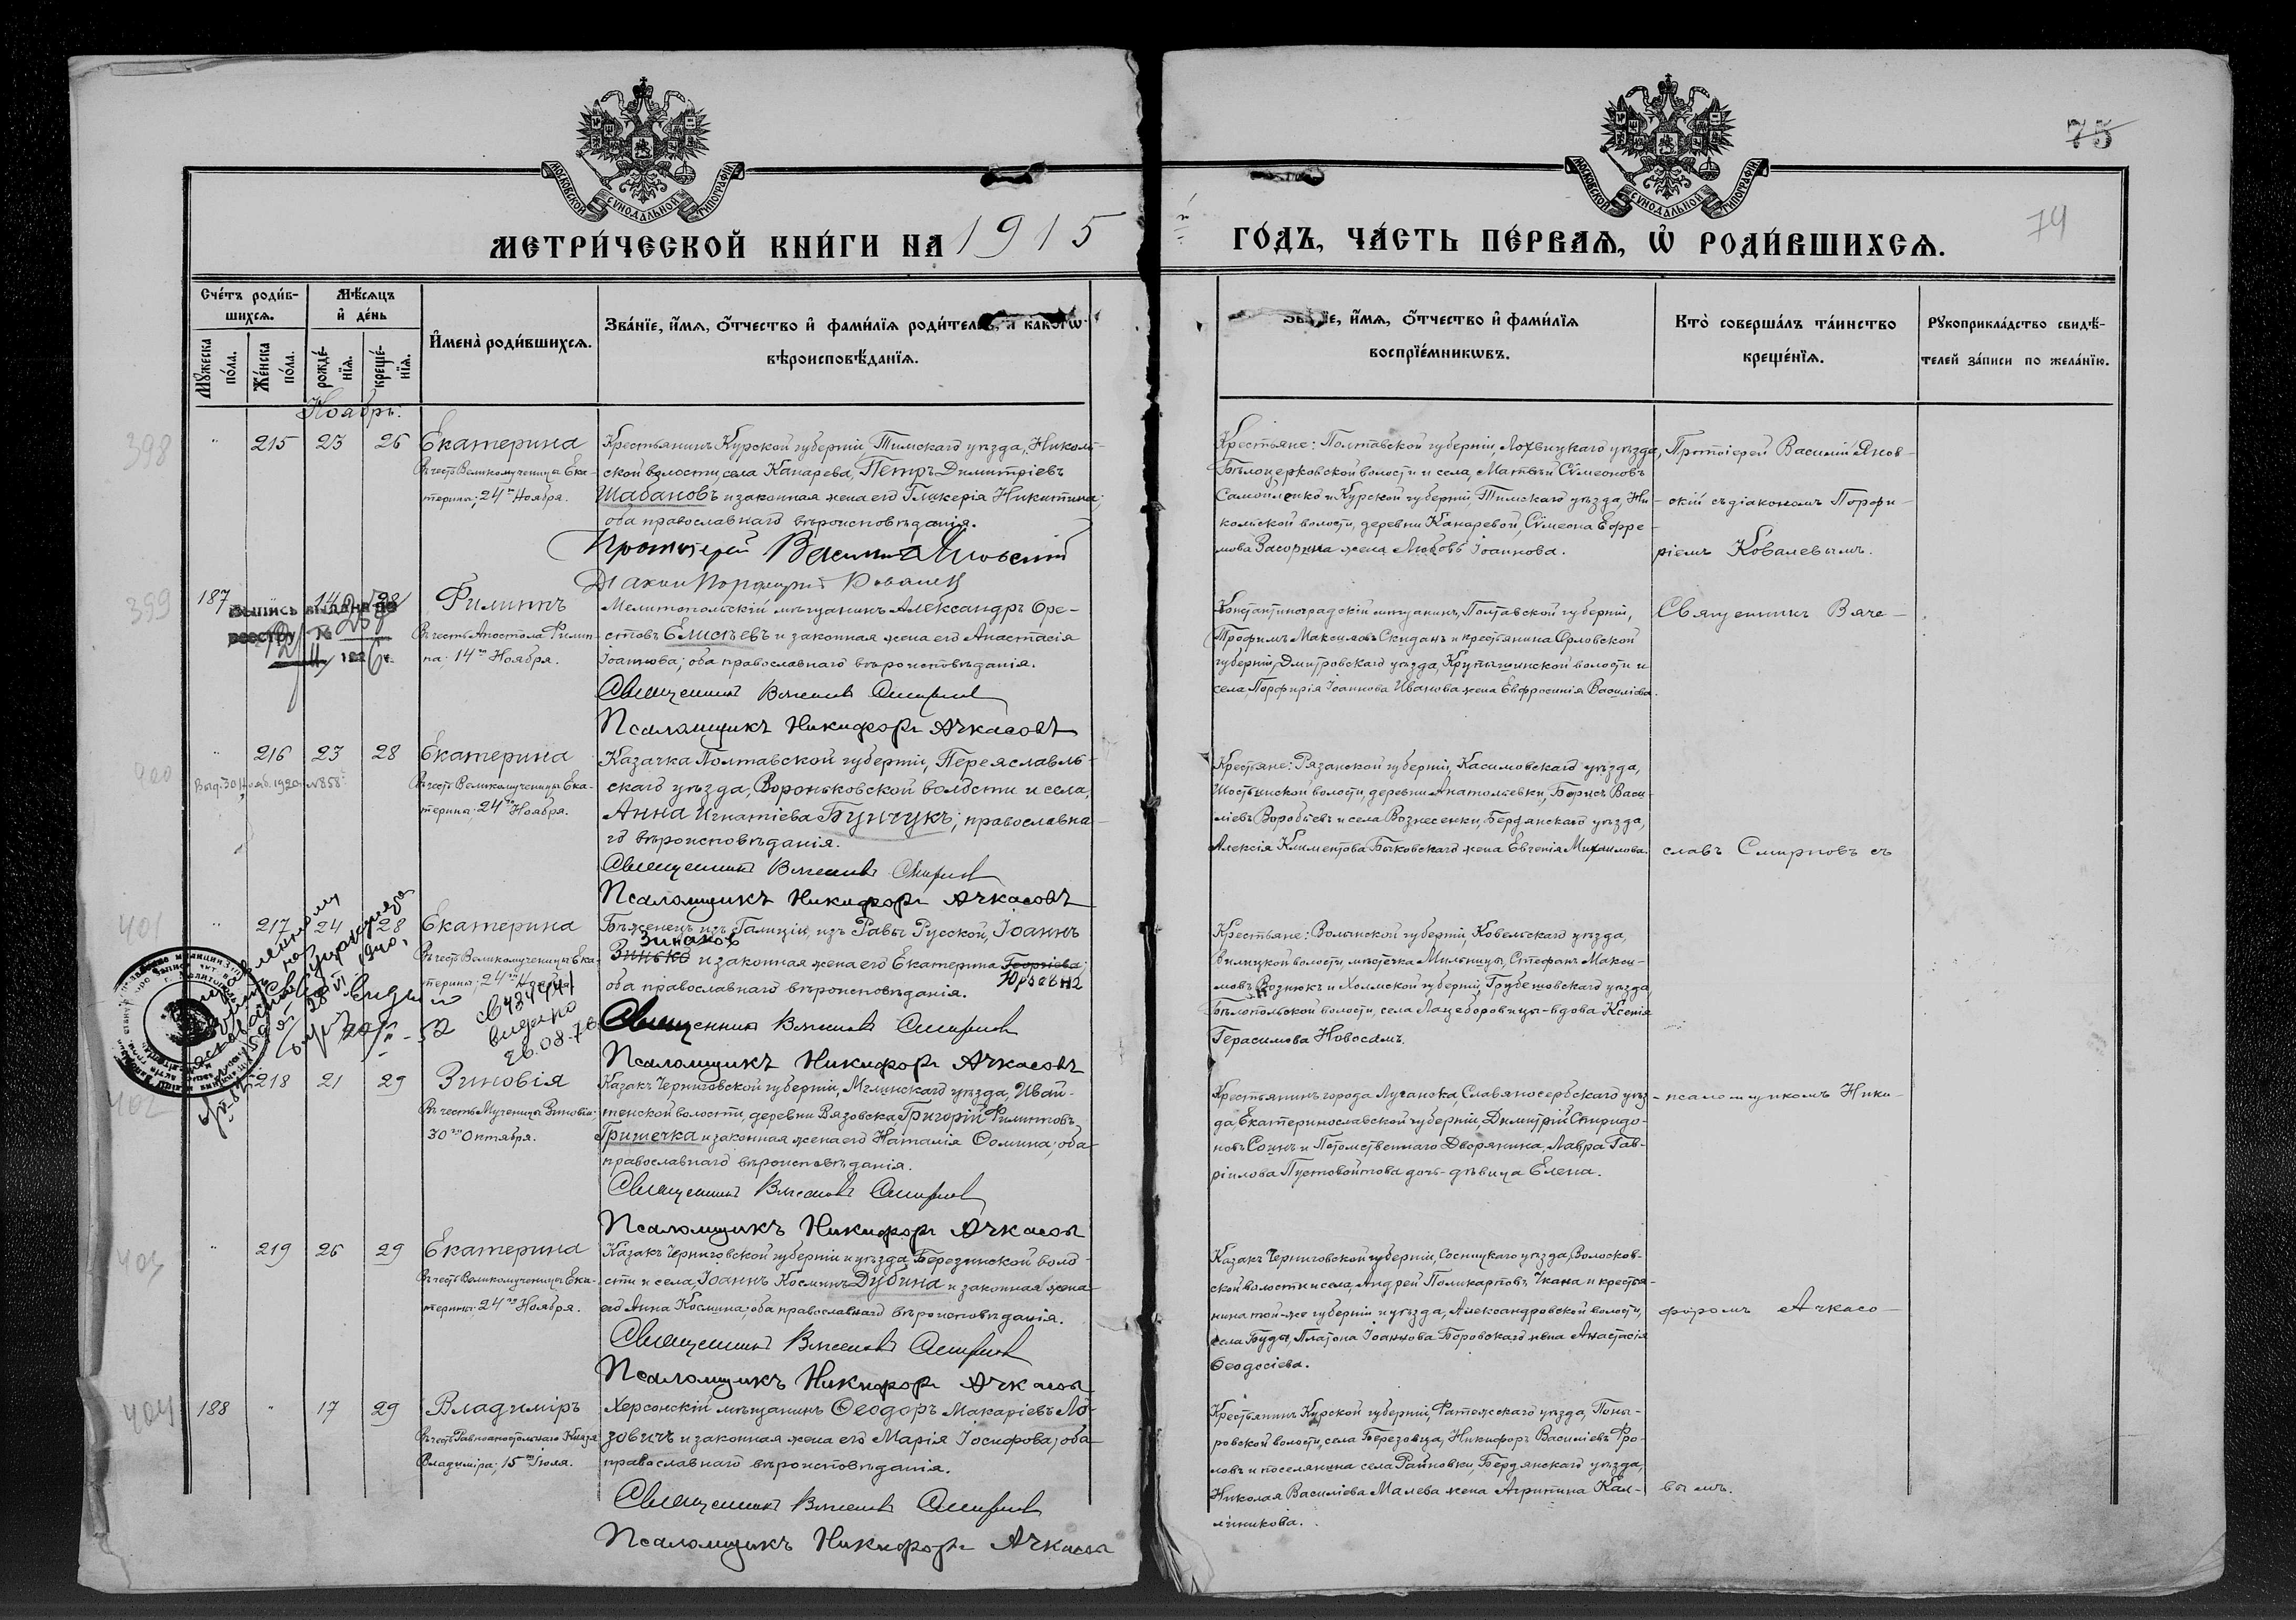 75
74
МОСКОВСКОЙ СѴНОДАЛЬНОЙ ТИПОГРАФІИ
МОСКОВСКОЙ СѴНОДАЛЬНОЙ ТИПОГРАФІИ
МЕТРИ́ЧЕСКОЙ КНИ́ГИ НА 1915
й ГО́ДЪ, ЧА́СТЬ ПЕ́РВАѦ, Ѡ҆ РОДИ́ВШИХСѦ.
Сче́тъ роди́в-
шихсѧ.
Мꙋ́жеска по́ла.
Же́нска по́ла.
Мѣ́сѧцъ
и҆ де́нь
рожде́-нїѧ.
креще́-нїѧ.
И҆мена̀ роди́вшихсѧ.
Зва́нїе, и҆́мѧ, ѻ҆́тчество и҆ фами́лїѧ родителей, и҆ како́гѡ
вѣроисповѣ́данїѧ.
Зва́нїе, и҆́мѧ, ѻ҆́тчество и҆ фами́лїѧ
воспрїе́мникѡвъ.
Кто̀ соверша́лъ та́инство
креще́нїѧ.
Рꙋкоприкла́дство свидѣ́-
телей за́писи по жела́нїю.
Ноябрь:
398
" 215 23 26 Екатерина
Въ честь Великомученицы Ека-
терины; 24го Ноября.
Крестьянинъ Курской губерніи, Тимскаго уѣзда, Николь-
ской волости, села Канарева, Петръ Димитріевъ
Шабановъ и законная жена его Гликерія Никитина;
оба православнаго вѣроисповѣданія.
Протоіерей Василій Яновскій
Діаконъ Порфирій Ковалевъ
Крестьяне: Полтавской губерніи, Лохвицкаго уѣзда,
Бѣлоцерковской волости и села, Матвѣй Сѵмеоновъ
Самойленко и Курской губерніи, Тимскаго уѣзда, Ни-
кольской волости, деревни Канаревой, Сѵмеона Ефре-
мова Засорина жена Любовь Іоаннова.
Протоіерей Василій Янов-
скій съ діакономъ Порфи-
ріемъ Ковалевымъ.
399
187 14 28 Филиппъ
Выпись выдана по
реестру №
Въ честь Апостола Филип-
па; 14го Ноября.
Мелитопольскій мѣщанинъ Александръ Оре-
стовъ Елисѣевъ и законная жена его Анастасія
Іоаннова; оба православнаго вѣроисповѣданія.
Священникъ Вячеславъ Смирновъ
Псаломщикъ Никифоръ Ачкасовъ
Константиноградскій мѣщанинъ, Полтавской губерніи,
Трофимъ Максимовъ Скиданъ и крестьянина Орловской
губерніи, Дмитровскаго уѣзда, Крупышинской волости и
села, Порфирія Іоаннова Иванова жена Евфросинія Василіева.
Священникъ Вяче-
400
" 216 23 28 Екатерина
Выд. 30 Нояб. 1920 г. № 858
Въ честь Великомученицы Ека-
терины; 24го Ноября.
Казачка Полтавской губерніи, Переяславль-
скаго уѣзда, Вороньковской волости и села,
Анна Игнатіева Бунчукъ; православна-
го вѣроисповѣданія.
Священникъ Вячеславъ Смирновъ
Псаломщикъ Никифоръ Ачкасовъ
Крестьяне: Рязанской губерніи, Касимовскаго уѣзда,
Шостьинской волости, деревни Анатольевки, Борисъ Васи-
ліевъ Воробьевъ и села Вознесенки, Бердянскаго уѣзда,
Алексія Климентова Быковскаго жена Евгенія Михаилова.
славъ Смирновъ съ
401
" 217 24 28 Екатерина
Въ честь Великомученицы Ека-
терины; 24го Ноября.
Бѣженецъ изъ Галиціи, изъ Равы Русской, Іоаннъ
Зинаков
Зинько и законная жена его Екатерина Георгіева;
оба православнаго вѣроисповѣданія. Юрьевна
Священникъ Вячеславъ Смирновъ
Псаломщикъ Никифоръ Ачкасовъ
видено
26.08.76
Крестьяне: Волынской губерніи, Ковельскаго уѣзда,
Велицкой волости, мѣстечка Мильницы, Стефанъ Макси-
мовъ Вознюкъ и Холмской губерніи, Грубешовскаго уѣзда,
Бѣлопольской волости, села Лацеборовицы - вдова Ксенія
Герасимова Новосадъ.
402
" 218 21 29 Зиновія
Въ честь Мученицы Зиновіи
30го Октября.
Казакъ Черниговской губерніи, Мглинскаго уѣзда, Ивай-
тенской волости, деревни Вязовска, Григорій Филипповъ
Гришечка и законная жена его Наталія Ѳомина; оба
православнаго вѣроисповѣданія.
Священникъ Вячеславъ Смирновъ
Псаломщикъ Никифоръ Ачкасовъ
Крестьянинъ города Луганска, Славяносербскаго уѣз-
да, Екатеринославской губерніи, Димитрій Спиридо-
новъ Сошнъ и Потомственнаго Дворянина, Лавра Гав-
ріилова Пустовойтова дочь - дѣвица Елена.
псаломщикомъ Ники-
403
" 219 26 29 Екатерина
Въ честь Великомученицы Ека-
терины; 24го Ноября.
Казакъ Черниговской губерніи и уѣзда, Березинской воло-
сти и села, Іоаннъ Косминъ Дубина и законная жена
его Анна Космина; оба православнаго вѣроисповѣданія.
Священникъ Вячеславъ Смирновъ
Псаломщикъ Никифоръ Ачкасовъ
Казакъ Черниговской губерніи, Сосницкаго уѣзда, Волосков-
ской волости и села, Андрей Поликарповъ Ткана и крестья-
нина той-же губерніи и уѣзда, Александровской волости,
села Буды, Платона Іоаннова Боровскаго жена Анастасія
Ѳеодосіева.
форомъ Ачкасо-
404
188 " 17 29 Владиміръ
Въ честь Равноапостольнаго Князя
Владиміра; 15го Іюля.
Херсонскій мѣщанинъ Ѳеодоръ Макаріевъ Ло-
зовичъ и законная жена его Марія Іосифова; оба
православнаго вѣроисповѣданія.
Священникъ Вячеславъ Смирновъ
Псаломщикъ Никифоръ Ачкасовъ
Крестьянинъ Курской губерніи, Фатежскаго уѣзда, Поны-
ровской волости, села Березовца, Никифоръ Василіевъ Фро-
ловъ и поселянина села Райновки, Бердянскаго уѣзда,
Николая Василіева Малева жена Агриппина Кал-
линикова.
вымъ.